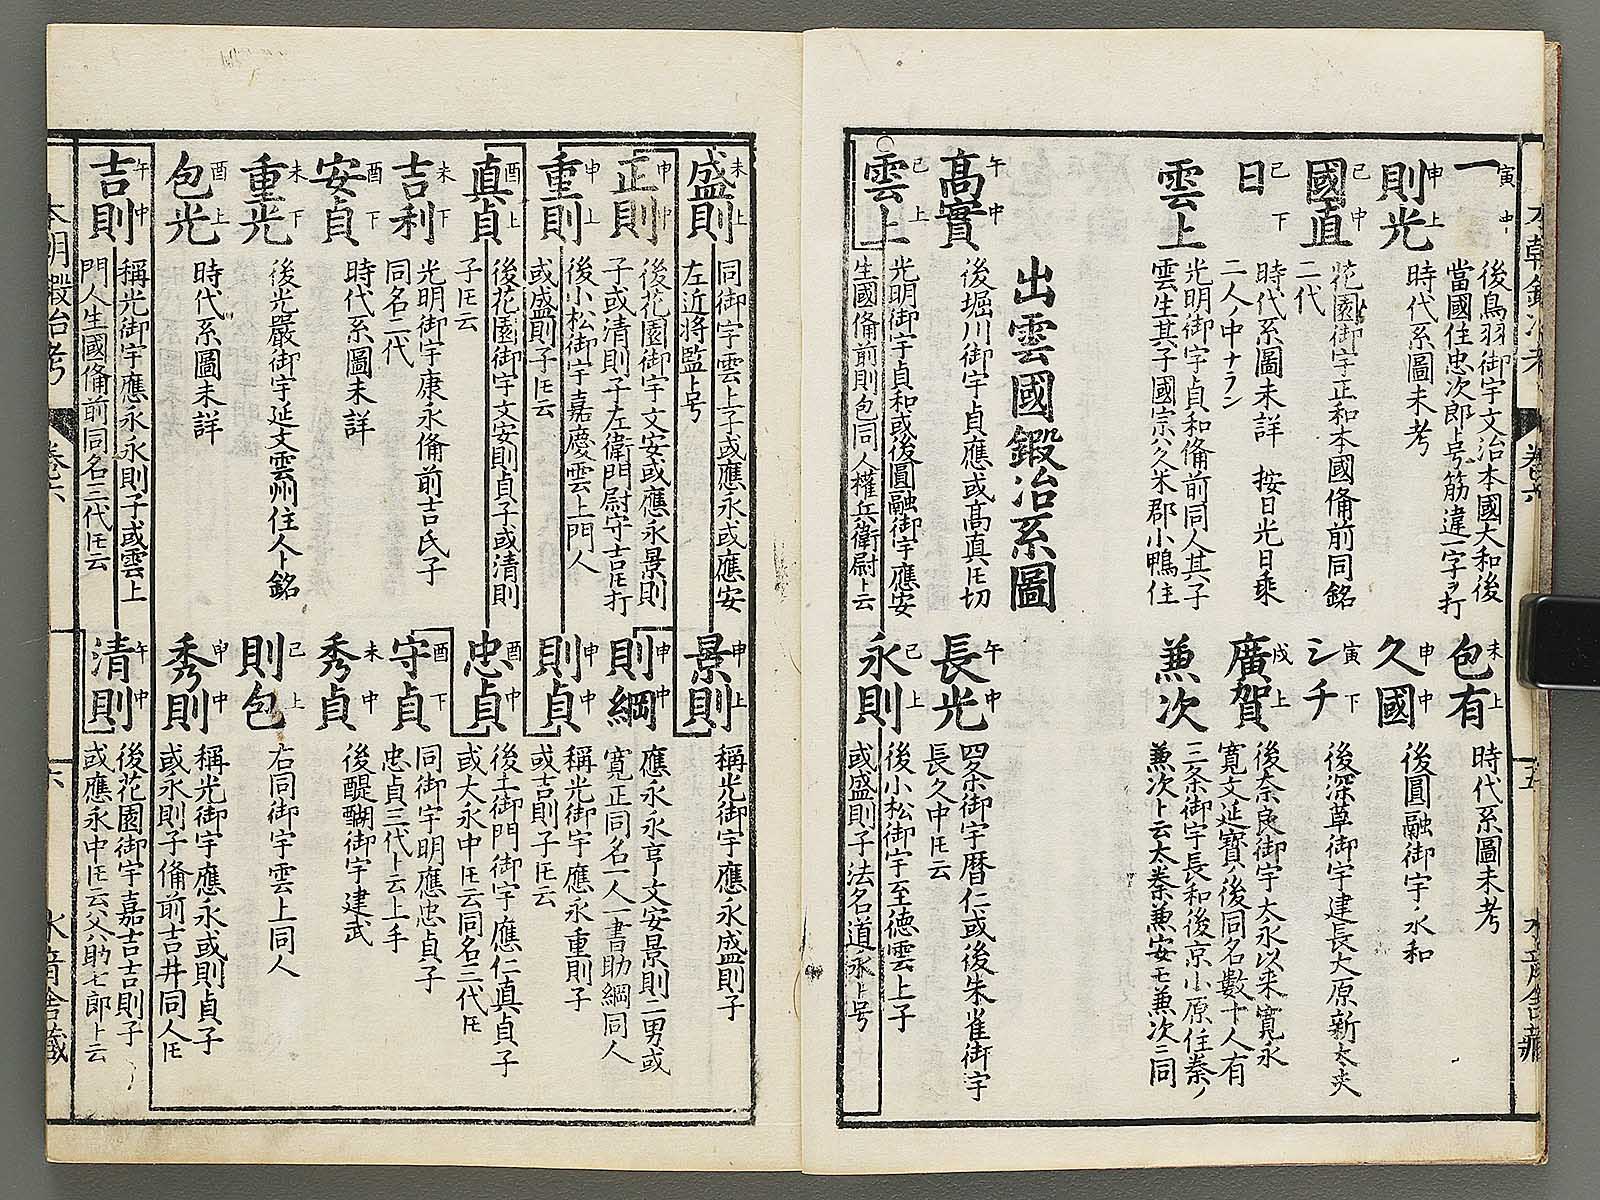 一 寅中
後鳥羽御宇文治本國大和後
當國住忠次郎ト号筋違一字ヲ打
包有 未上
時代系圖未考
則光 申上
時代系圖未考
久國 申中
後圓融御宇永和
國直 己中
花園御宇正和本國備前同銘
二代
シチ 寅下
後深草御宇建長大原新太夫
日 己下
時代系圖未詳 按日光日乗
二人ノ中ナラン
廣賀 戌上
後奈良御宇大永以来寛永
寛文延寶ノ後同名數十人有
雲上
光明御宇貞和備前同人其子
雲生其子國宗八久米郡小鴨住
兼次
三条御宇長和後京小原住秦ノ
兼次ト云太秦兼安モ兼次三同
出雲國鍛冶系圖
髙實 午中
後堀川御宇貞應或髙真𪜈切
長光 午中
四条御宇暦仁或後朱雀御宇
長久中𪜈云
雲上 己上
光明御宇貞和或後圓融御宇應安
生國備前則包同人權兵衛尉ト云
永則 己上
後小松御宇至徳雲上子
或盛則子法名道永ト号
盛則 未上
同御宇雲上子或應永或應安
左近将監ト号
景則 申上
稱光御宇應永盛則子
正則 申中
後花園御宇文安或應永景則
子或清則子左衛門尉守吉𪜈打
則綱 申中
應永永亨文安景則二男或
寛正同名一人一書助綱同人
重則 申上
後小松御宇嘉慶雲上門人
或盛則子𪜈云
則貞 申中
稱光御宇應永重則子
或吉則子𪜈云
真貞 酉上
後花園御宇文安則貞子或清則
子𪜈云
忠貞 酉中
後土御門御宇應仁真貞子
或大永中𪜈云同名三代𪜈
吉利 未下
光明御宇康永備前吉氏子
同名二代
守貞 酉下
同御宇明應忠貞子
忠貞三代ト云上手
安貞 酉下
時代系圖未詳
秀貞 未中
後醍醐御宇建武
重光 未下
後光嚴御宇延文雲州住人ト銘
則包 己上
右同御宇雲上同人
包光 酉上
時代系圖未詳
秀則 申中
稱光御宇應永或則貞子
或永則子備前吉井同人𪜈
吉則 午中
稱光御宇應永永則子或雲上
門人生國備前同名三代𪜈云
清則 午中
後花園御宇嘉吉吉則子
或應永中𪜈云父八助七郎ト云
本朝鍛冶考 卷六 十六 水音舎藏